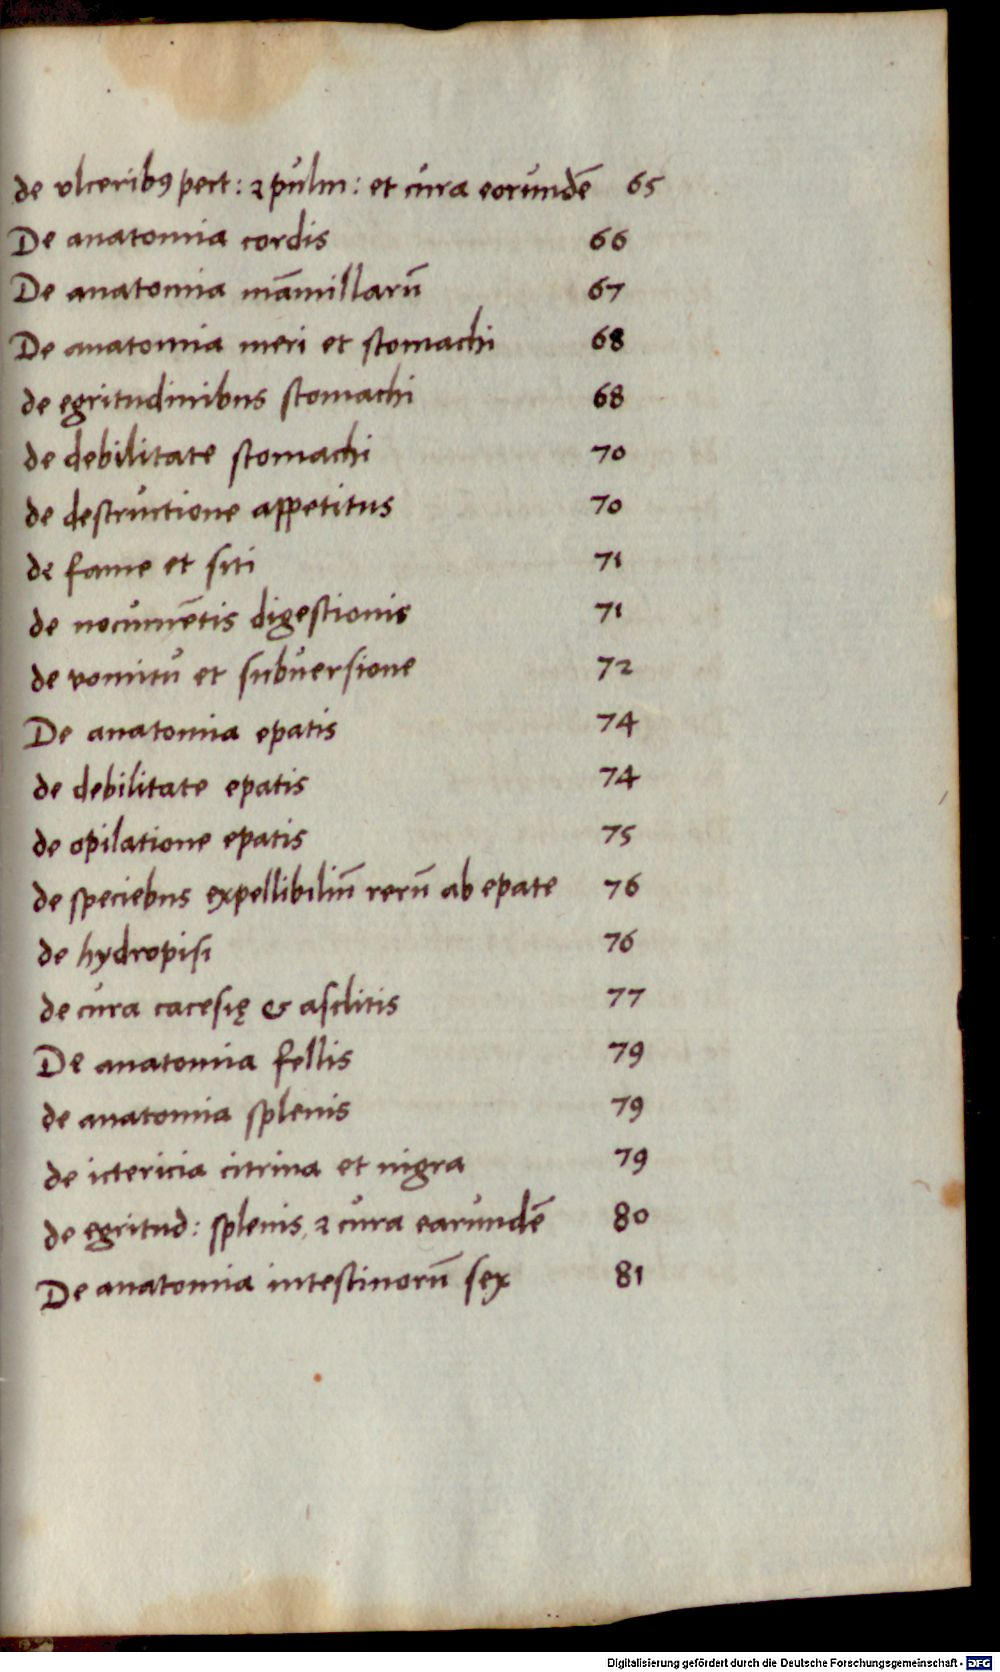 de vlceribꝯ pect: ⁊ pulm: et cura eorundē 65
De anatomia cordis 66
De anatomia māmillarū 67
De anatomia meri et stomachi 68
de egritudinibus stomachi 68
de debilitate stomachi 70
de destructione appetitus 70
de fame et siti 71
de nocumētis digestionis 71
de vomitu et subuersione 72
De anatomia epatis 74
de debilitate epatis 74
de opilatione epatis 75
de speciebus expellibiliū rerū ab epate 76
de hydropisi 76
de cura cacesię & asclitis 77
De anatomia fellis 79
de anatomia splenis 79
de ictericia citrina et nigra 79
de egritud: splenis, ⁊ cura earundē 80
De anatomia intestinorū sex 81
Digitalisierung gefördert durch die Deutsche Forschungsgemeinschaft - DFG